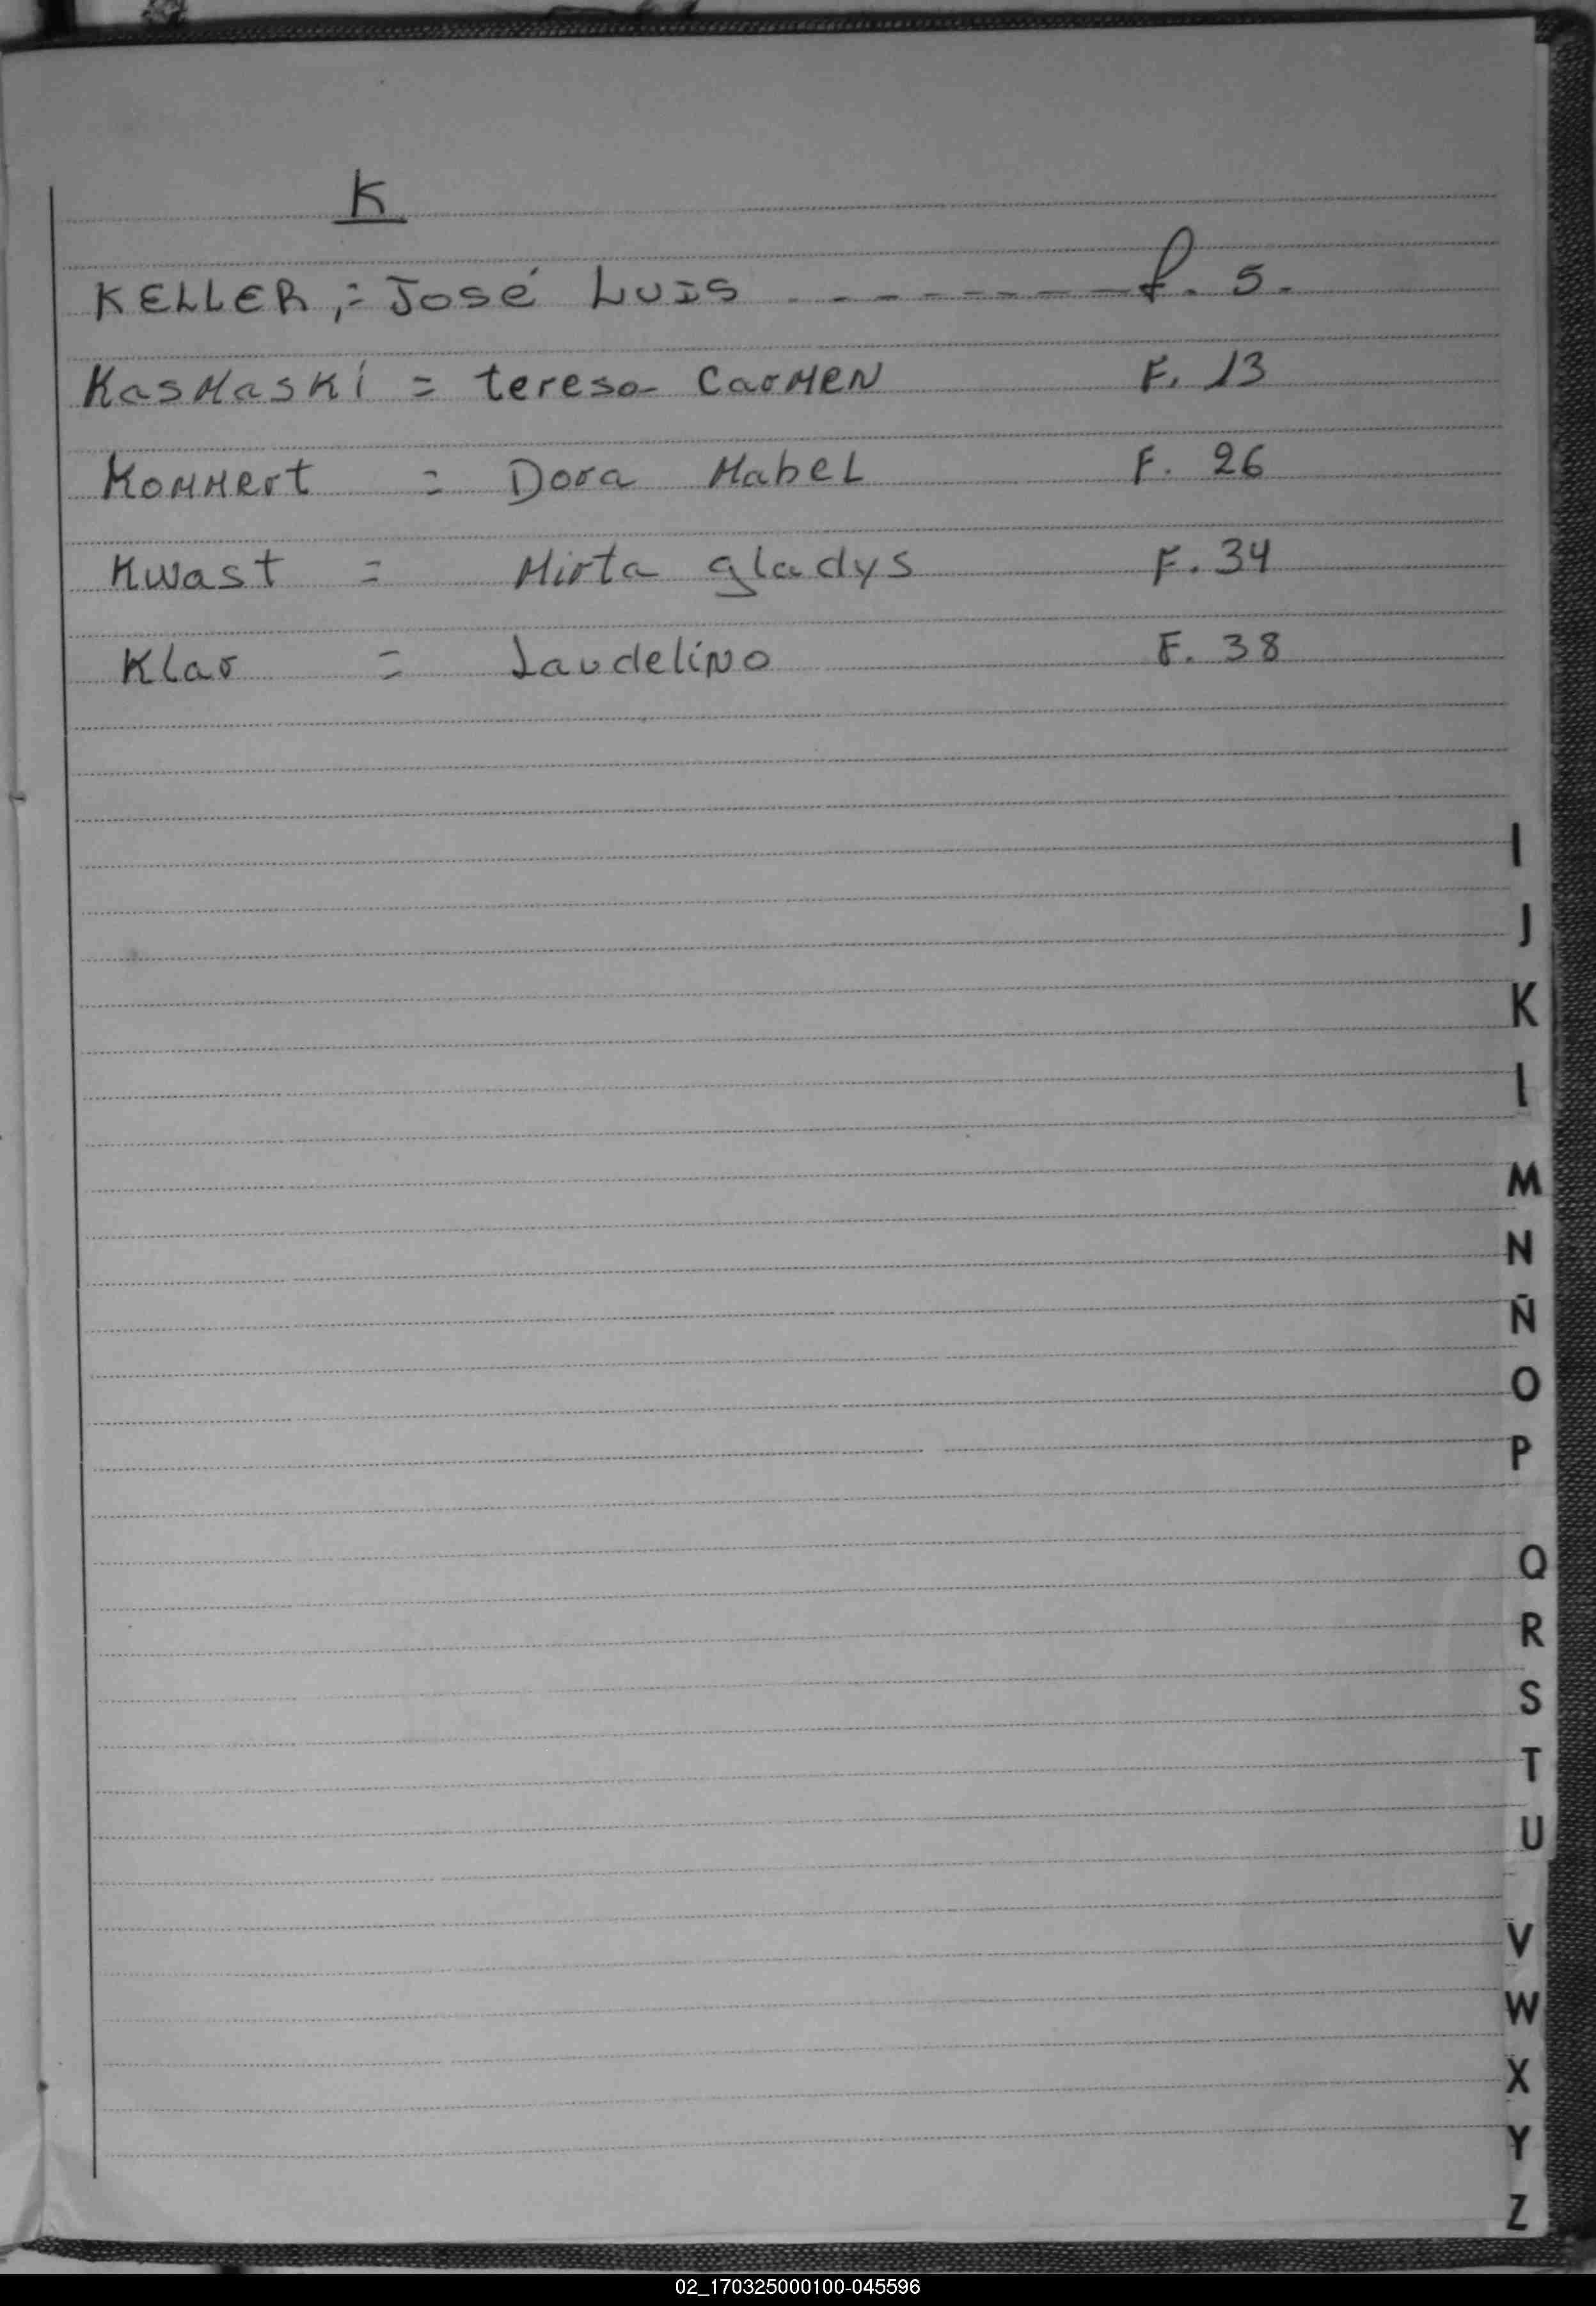 K
KELLER, = José LUIS - - - - - - - - f. 5.
KasMasKi = teresa CarMEN F. 13
KoMMert = Dora MabeL F. 26
Kwast = Mirta gladys F. 34
Klar = LaudeliNo F. 38
I
J
K
L
M
N
Ñ
O
P
Q
R
S
T
U
V
W
X
Y
Z
02_170325000100-045596